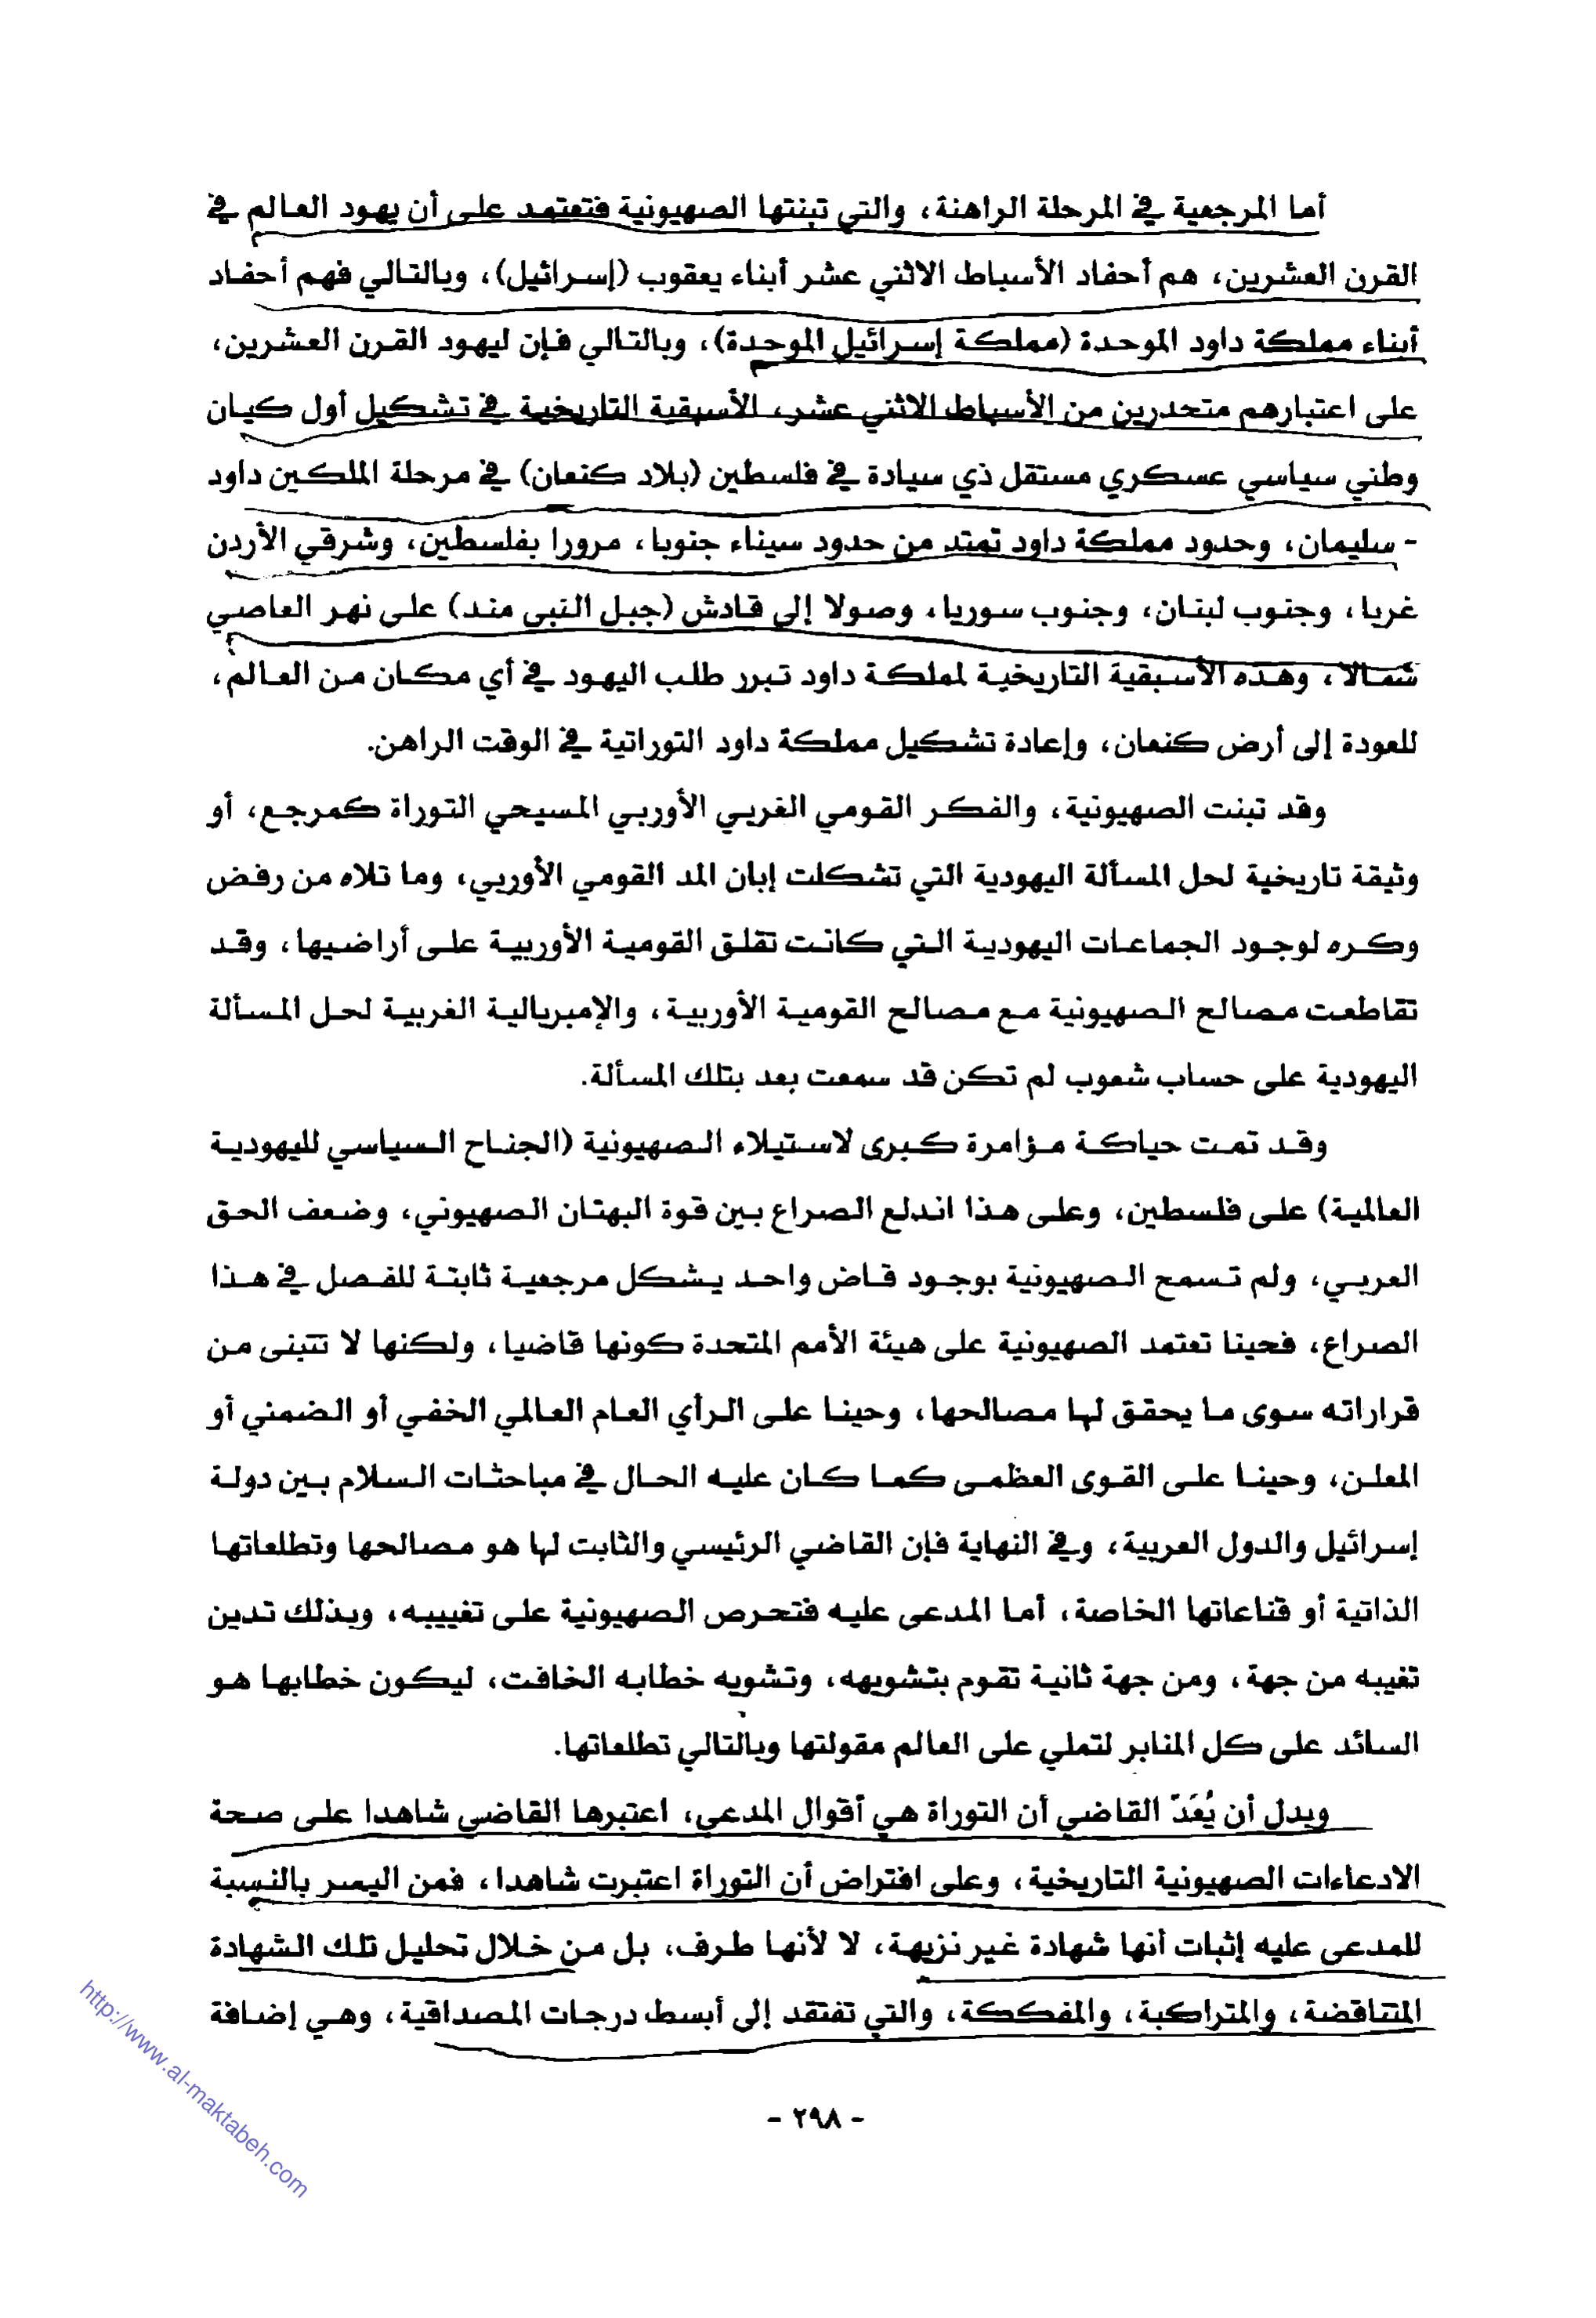 أما المرجعية في المرحلة الراهنة، والتي تبنتها الصهيونية فتعتمد على أن يهود العالم في
القرن العشرين، هم أحفاد الأسباط الاثني عشر أبناء يعقوب (إسرائيل)، وبالتالي فهم أحفاد
أبناء مملكة داود الموحدة (مملكة إسرائيل الموحدة)، وبالتالي فإن ليهود القرن العشرين،
على اعتبارهم متحدرين من الأسباط الاثني عشر، الأسبقية التاريخية في تشكيل أول كيان
وطني سياسي عسكري مستقل ذي سيادة في فلسطين (بلاد كنعان) في مرحلة الملكين داود
- سليمان، وحدود مملكة داود تمتد من حدود سيناء جنوبا، مرورا بفلسطين، وشرقي الأردن
غربا، وجنوب لبنان، وجنوب سوريا، وصولا إلى قادش (جبل النبي مند) على نهر العاصي
شمالا، وهذه الأسبقية التاريخية لمملكة داود تبرر طلب اليهود في أي مكان من العالم،
للعودة إلى أرض كنعان، وإعادة تشكيل مملكة داود التوراتية في الوقت الراهن.
وقد تبنت الصهيونية، والفكر القومي الغربي الأوربي المسيحي التوراة كمرجع، أو
وثيقة تاريخية لحل المسألة اليهودية التي تشكلت إبان المد القومي الأوربي، وما تلاه من رفض
وكره لوجود الجماعات اليهودية التي كانت تقلق القومية الأوربية على أراضيها، وقد
تقاطعت مصالح الصهيونية مع مصالح القومية الأوربية، والإمبريالية الغربية لحل المسألة
اليهودية على حساب شعوب لم تكن قد سمعت بعد بتلك المسألة.
وقد تمت حياكة مؤامرة كبرى لاستيلاء الصهيونية (الجناح السياسي لليهودية
العالمية) على فلسطين، وعلى هذا اندلع الصراع بين قوة البهتان الصهيوني، وضعف الحق
العربي، ولم تسمح الصهيونية بوجود قاض واحد يشكل مرجعية ثابتة للفصل في هذا
الصراع، فحينا تعتمد الصهيونية على هيئة الأمم المتحدة كونها قاضيا، ولكنها لا تتبنى من
قراراته سوى ما يحقق لها مصالحها، وحينا على الرأي العام العالمي الخفي أو الضمني أو
المعلن، وحينا على القوى العظمى كما كان عليه الحال في مباحثات السلام بين دولة
إسرائيل والدول العربية، وفي النهاية فإن القاضي الرئيسي والثابت لها هو مصالحها وتطلعاتها
الذاتية أو قناعاتها الخاصة، أما المدعى عليه فتحرص الصهيونية على تغييبه، وبذلك تدين
تغيبه من جهة، ومن جهة ثانية تقوم بتشويهه، وتشويه خطابه الخافت، ليكون خطابها هو
السائد على كل المنابر لتملي على العالم مقولتها وبالتالي تطلعاتها.
وبدل أن يُعَدّ القاضي أن التوراة هي أقوال المدعي، اعتبرها القاضي شاهدا على صحة
الادعاءات الصهيونية التاريخية، وعلى افتراض أن التوراة اعتبرت شاهدا، فمن اليسر بالنسبة
للمدعى عليه إثبات أنها شهادة غير نزيهة، لا لأنها طرف، بل من خلال تحليل تلك الشهادة
المتناقضة، والمتراكبة، والمفككة، والتي تفتقد إلى أبسط درجات المصداقية، وهي إضافة
- ٢٩٨ -
http://www.al-maktabeh.com